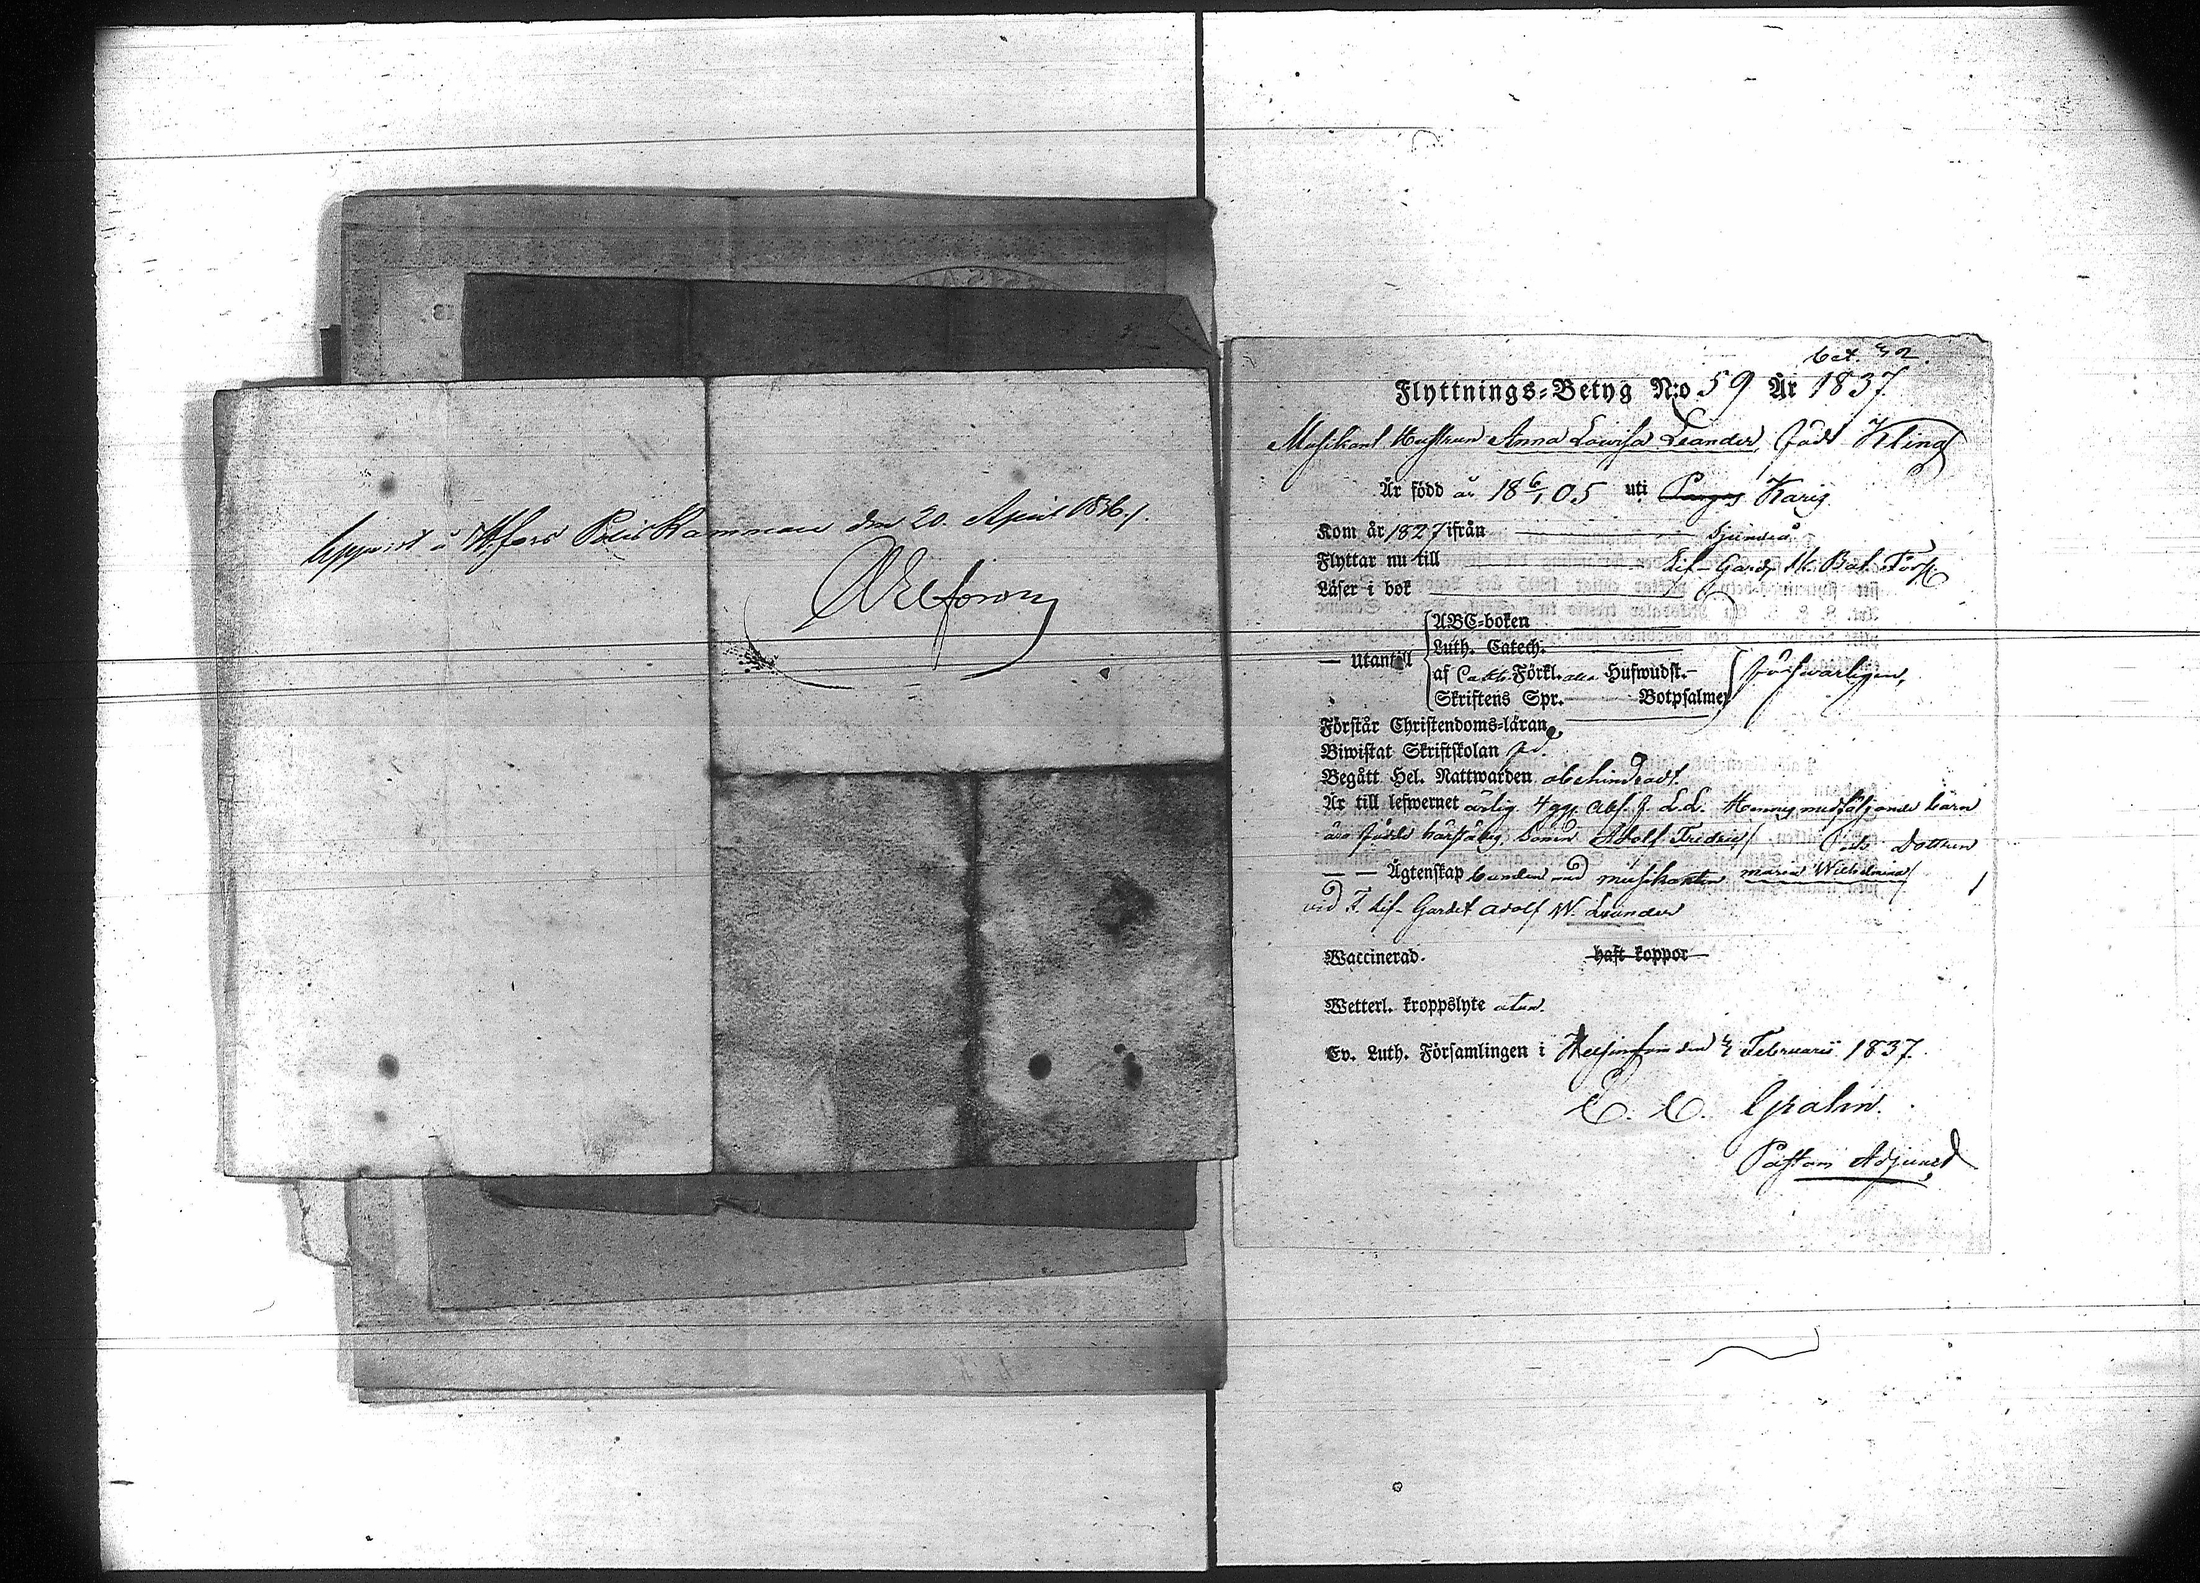 Uppvist i H:fors Polis Kammare den 20. April 1836.
bet.
Flyttnings-Betyg N:o 59 År 1837
Musikant Hustrun Anna Lovisa Leander, född Kling
Är född år 18 6/1 05 uti Pargas Karis
Kom år 1827 ifrån Sjundeå
Flyttar nu till Lif-Gard. Bat. Förs.
Läser i bok
— Utantill
ABC-boken
Luth. Catech.
af Cath. Förkl. alla Hufwudst.-
Skriftens Spr. Botpsalmer
försvarligen,
Förstår Christendoms-läran
Biwistat Skriftskolan
Begått Hel. Nattwarden obehindradt.
Är till lefwernet ärlig. Hennes medföljande barn
äro födde Sonen Adolf Fredric Dottren
— — Ägtenskap bunden med musikanten Maria Wilhelmina
vid F. Lif-Gardet Adolf W. Leander
Waccinerad. haft koppor
Wetterl. kroppslyte utan.
Ev. Luth. Församlingen i Helsinfors den Februarii 1837.
C. C. Grahn.
Pastors Adjunct